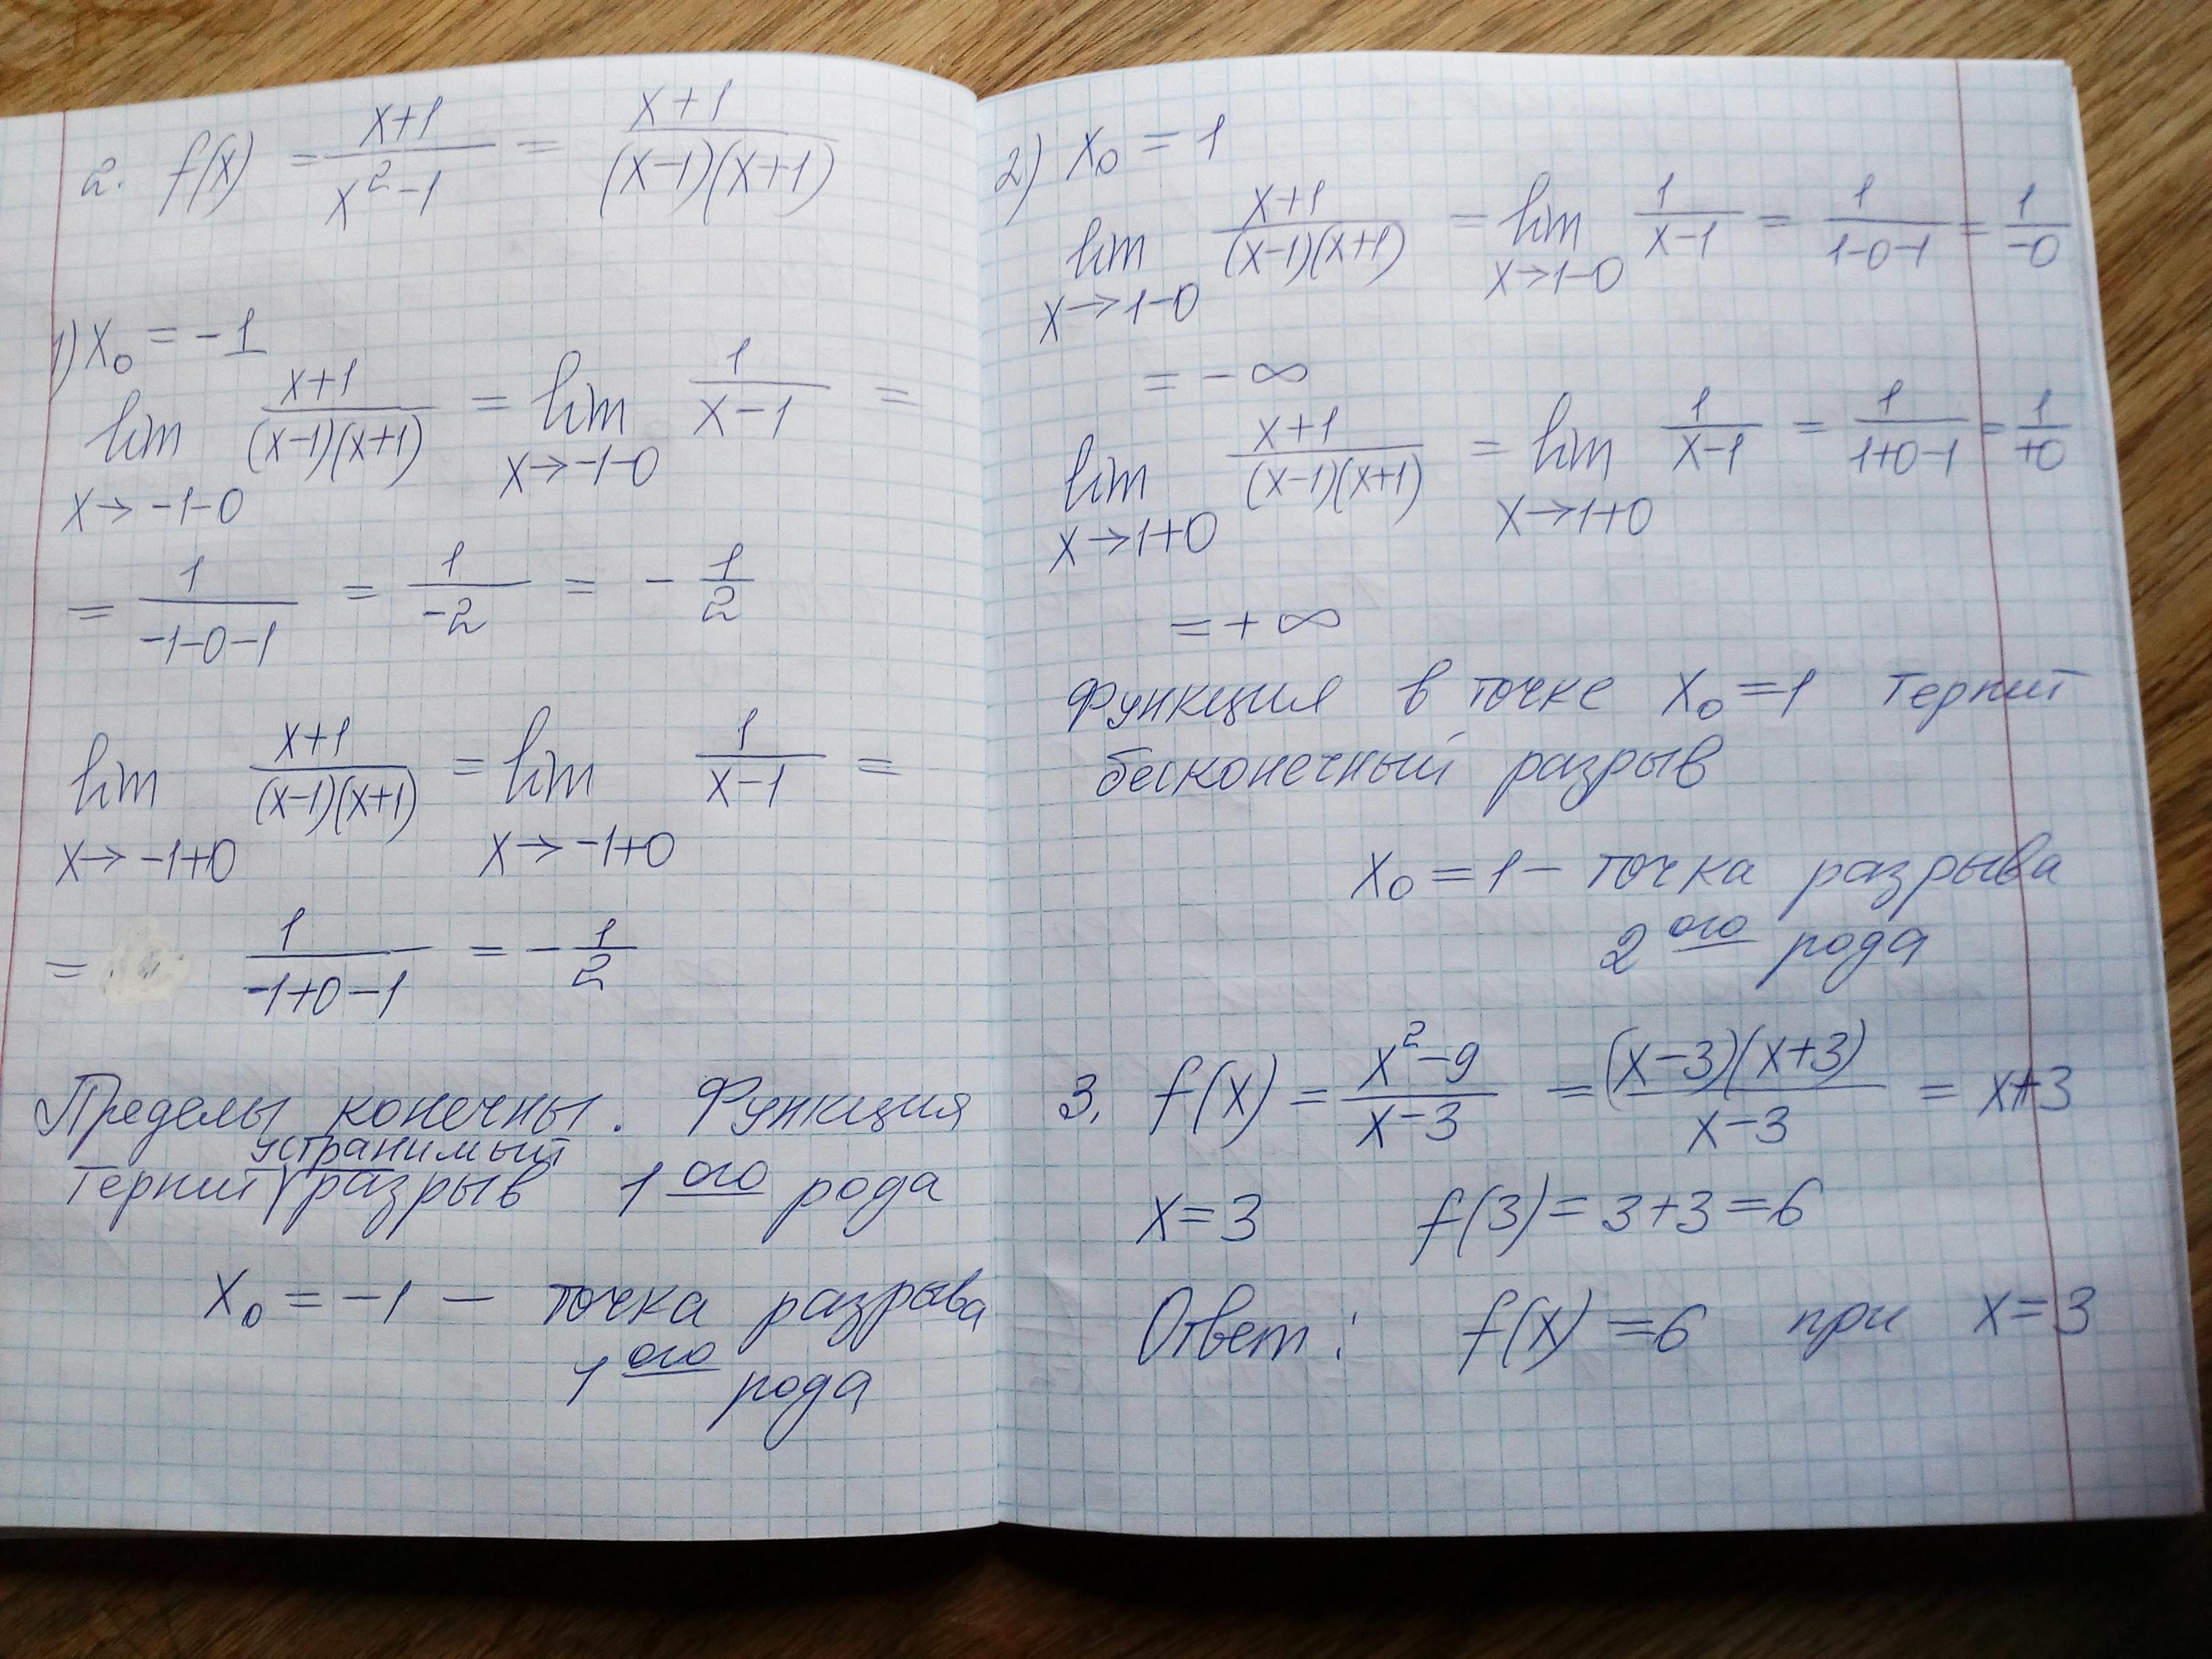 2. f(x) = (x+1)/(x²-1) = (x+1)/((x-1)(x+1))
1) x₀ = -1
lim x→-1-0 (x+1)/((x-1)(x+1)) = lim x→-1-0 1/(x-1) =
= 1/(-1-0-1) = 1/(-2) = -1/2
lim x→-1+0 (x+1)/((x-1)(x+1)) = lim x→-1+0 1/(x-1) =
= 1/(-1+0-1) = -1/2
Пределы конечны. Функция
терпит устранимый разрыв 1ого рода
x₀ = -1 - точка разрыва
1ого рода
2) x₀ = 1
lim x→1-0 (x+1)/((x-1)(x+1)) = lim x→1-0 1/(x-1) = 1/(1-0-1) = 1/(-0)
= -∞
lim x→1+0 (x+1)/((x-1)(x+1)) = lim x→1+0 1/(x-1) = 1/(1+0-1) = 1/(+0)
= +∞
Функция в точке x₀ = 1 терпит
бесконечный разрыв
x₀ = 1 - точка разрыва
2ого рода
3. f(x) = (x²-9)/(x-3) = ((x-3)(x+3))/(x-3) = x+3
x=3 f(3) = 3+3 = 6
Ответ: f(x) = 6 при x=3